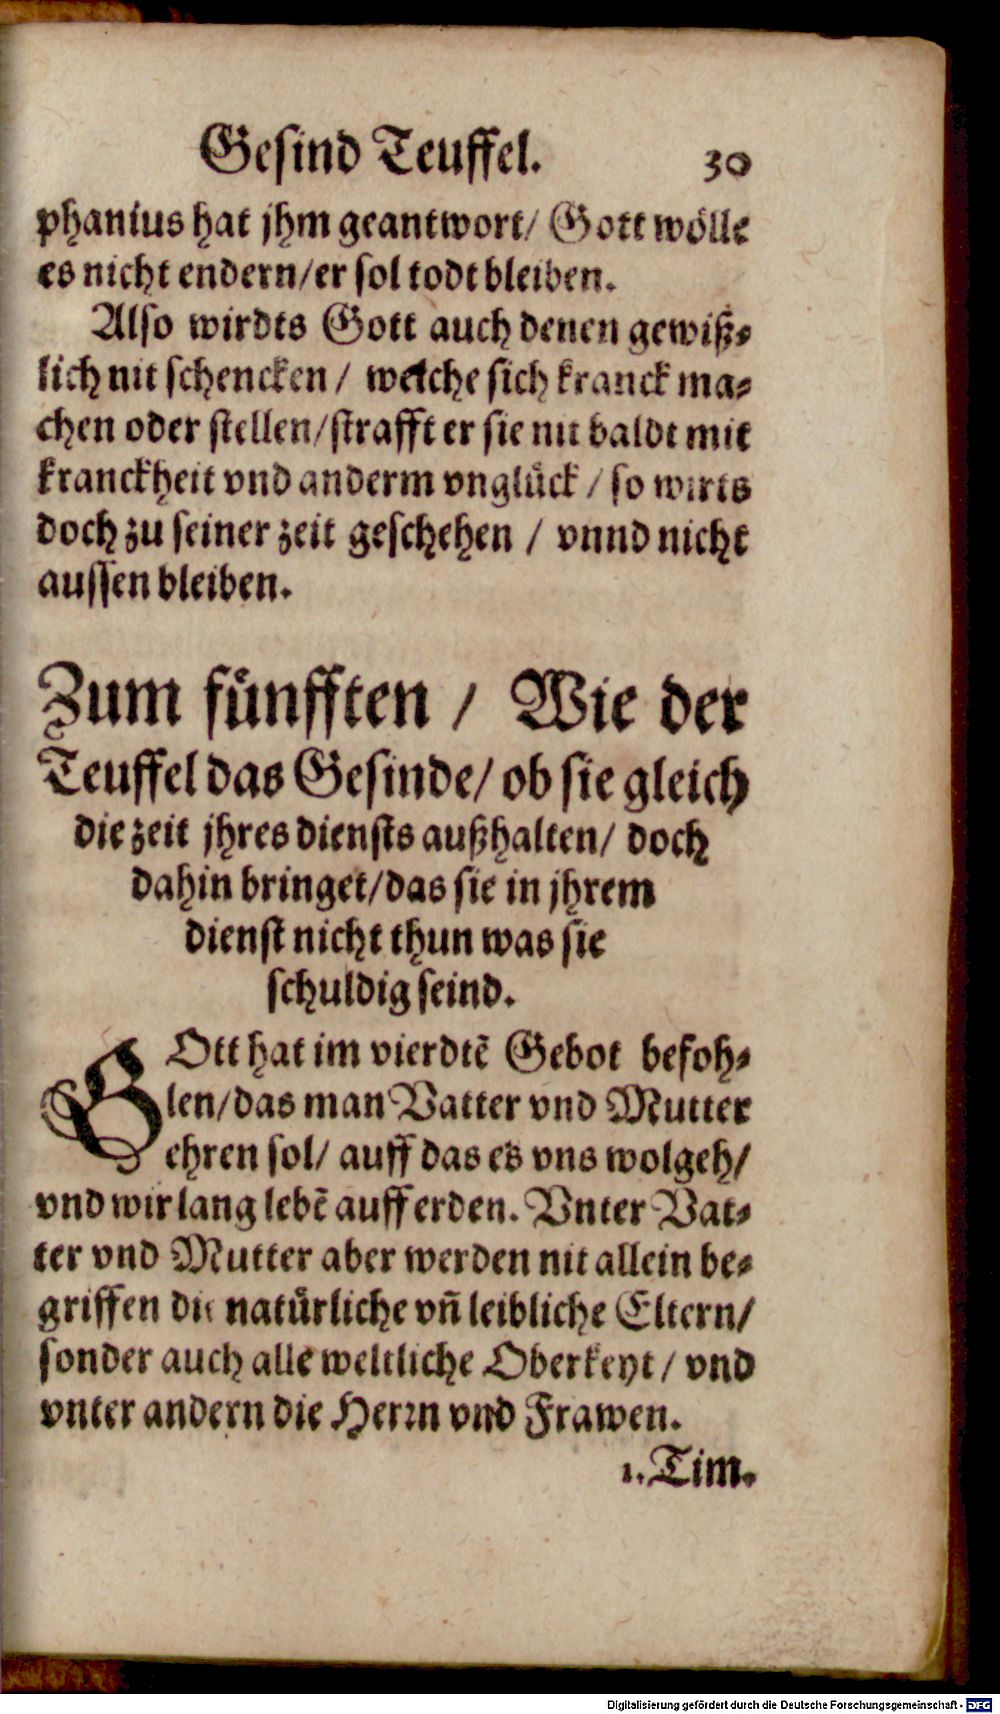 Gesind Teuffel. 30
phanius hat jhm geantwort/ Gott wölle
es nicht endern/er sol todt bleiben.
Also wirdts Gott auch denen gewiß⸗
lich nit schencken / welche sich kranck ma⸗
chen oder stellen/strafft er sie nit baldt mit
kranckheit vnd anderm vnglück / so wirts
doch zu seiner zeit geschehen / vnnd nicht
aussen bleiben.
Zum fünfften / Wie der
Teuffel das Gesinde/ ob sie gleich
die zeit jhres diensts außhalten/ doch
dahin bringet/das sie in jhrem
dienst nicht thun was sie
schuldig seind.
GOtt hat im vierdtẽ Gebot befoh⸗
len/das man Vatter vnd Mutter
ehren sol/ auff das es vns wolgeh/
vnd wir lang lebẽ auff erden. Vnter Vat⸗
ter vnd Mutter aber werden nit allein be⸗
griffen die natürliche vñ leibliche Eltern/
sonder auch alle weltliche Oberkeyt / vnd
vnter andern die Herrn vnd Frawen.
1. Tim.
Digitalisierung gefördert durch die Deutsche Forschungsgemeinschaft - DFG